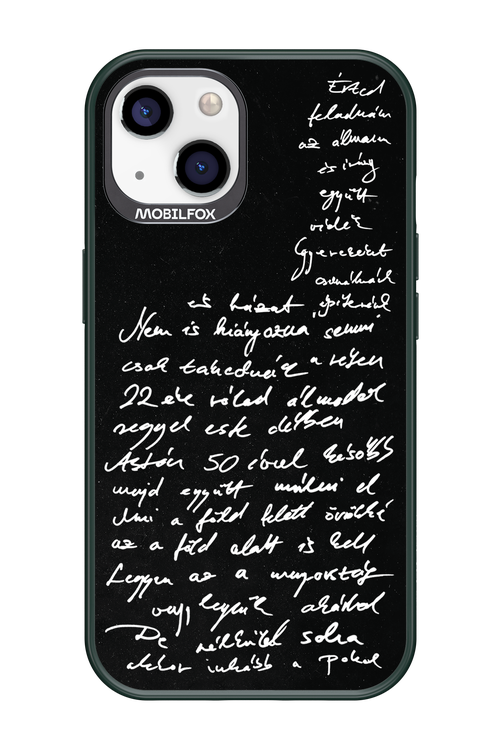 MOBILFOX
Érted
feladnám
az álmaim
és így
együtt
vidék
Gyerekeket
csinálnánk
és házat építenénk
Nem is hiányozna semmi
csak takednék a vészen
22 éve rólad álmodok
reggel este délben
Aztán 50 évvel később
majd együtt múlni el
Ami a föld felett örökké
az a föld alatt is kell
Legyen az a mennyország
vagy legyünk akárhol
De nélküled soha
akkor inkább a Pokol